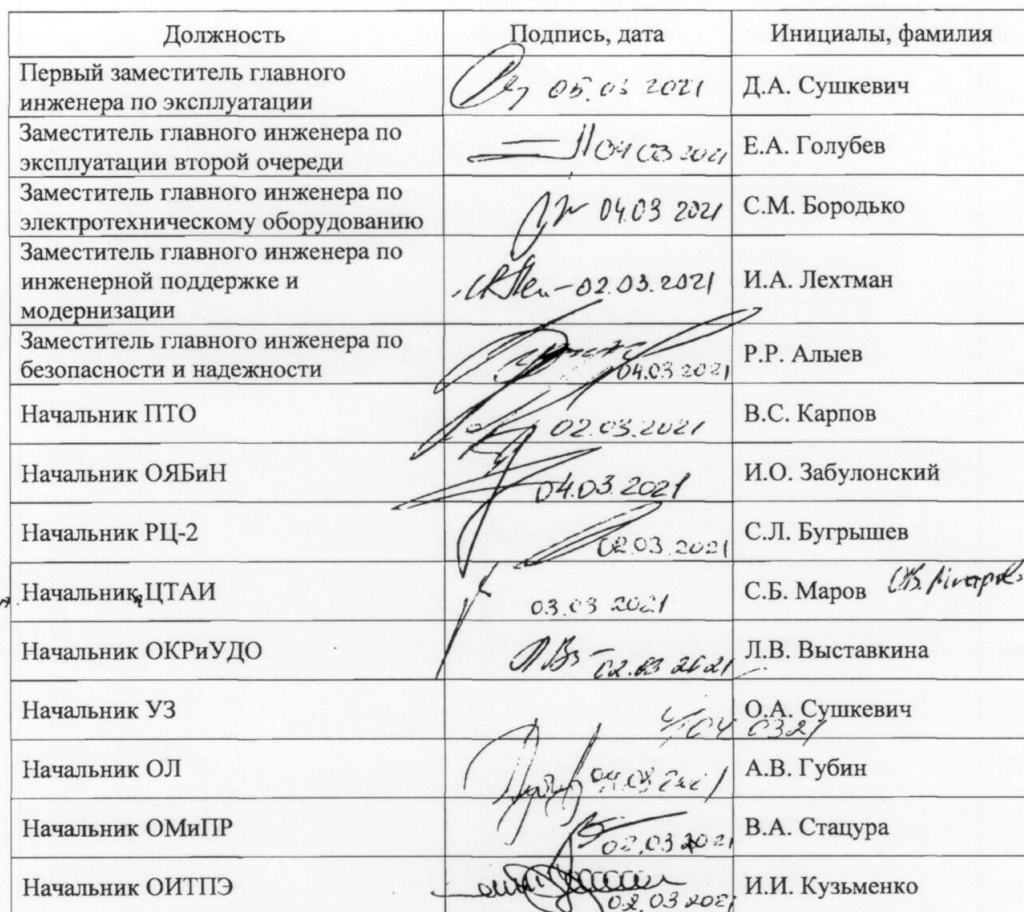 Должность Подпись, дата Инициалы, фамилия
Первый заместитель главного
инженера по эксплуатации 05.03 2021 Д.А. Сушкевич
Заместитель главного инженера по
эксплуатации второй очереди 04 03 2021 Е.А. Голубев
Заместитель главного инженера по
электротехническому оборудованию 04.03 2021 С.М. Бородько
Заместитель главного инженера по
инженерной поддержке и 02.03.2021 И.А. Лехтман
модернизации
Заместитель главного инженера по
безопасности и надежности 04.03 2021 Р.Р. Алыев
Начальник ПТО 02.03.2021 В.С. Карпов
Начальник ОЯБиН 04.03.2021 И.О. Забулонский
Начальник РЦ-2 02.03.2021 С.Л. Бугрышев
Начальник ЦТАИ 03.03 2021 С.Б. Маров
Начальник ОКРиУДО 02.03 2021 Л.В. Выставкина
Начальник УЗ 04 03 21 О.А. Сушкевич
Начальник ОЛ 04.03 2021 А.В. Губин
Начальник ОМиПР 02.03 2021 В.А. Стацура
Начальник ОИТПЭ 02.03 2021 И.И. Кузьменко